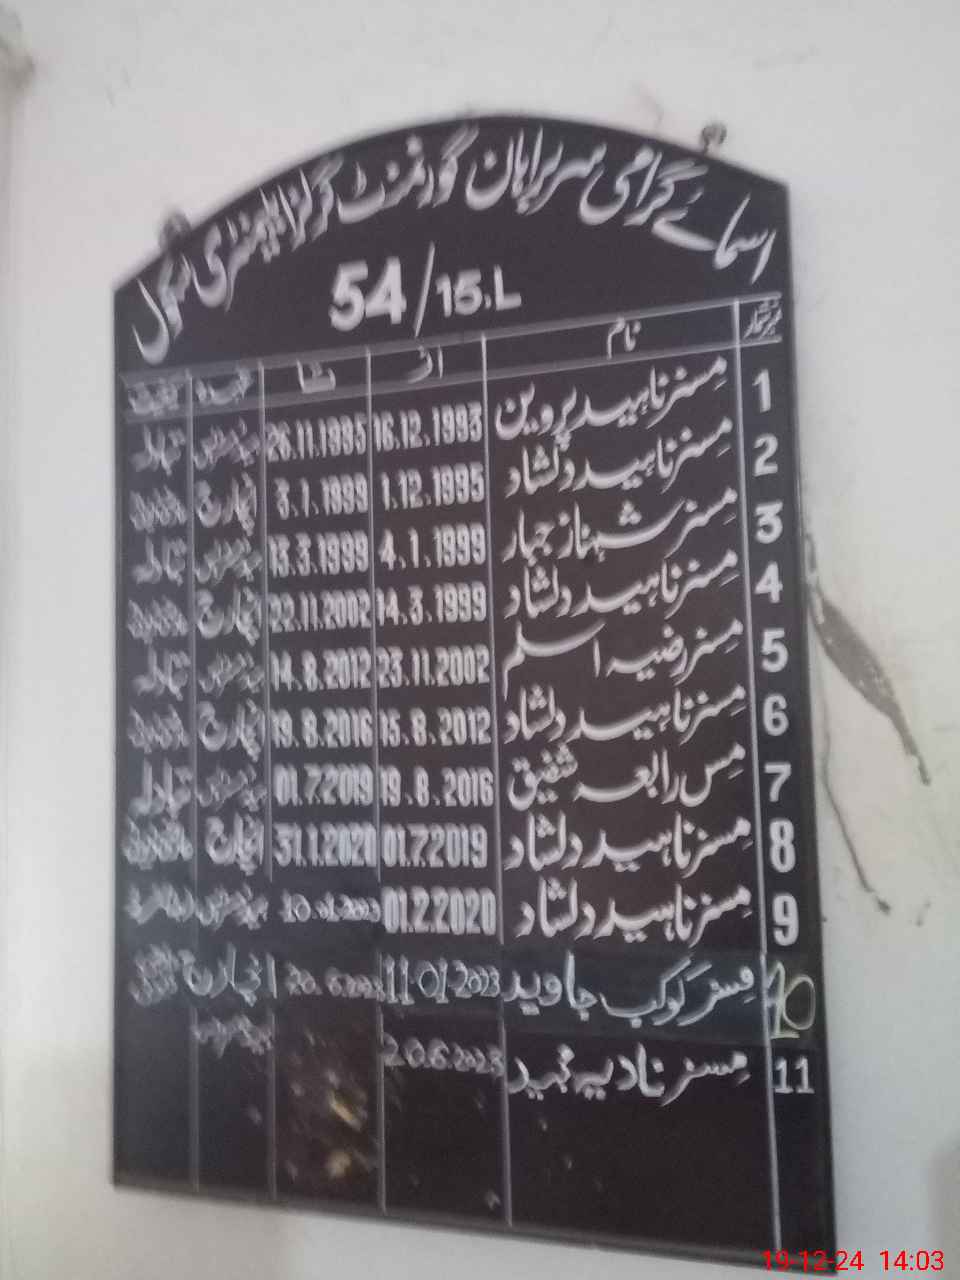 اسمائے گرامی سربراہان گورنمنٹ گرلز ایلیمنٹری سکول
54/15.L
نمبر شمار نام از تا عہدہ کیفیت
1 مسز ناہید پروین 16.12.1993 26.11.1995 ہیڈمسٹریس تبادلہ
2 مسز ناہید دلشاد 1.12.1995 3.1.1999 انچارج
3 مسز شہناز جبار 4.1.1999 13.3.1999 ہیڈمسٹریس تبادلہ
4 مسز ناہید دلشاد 14.3.1999 22.11.2002 انچارج
5 مسز رضیہ اسلم 23.11.2002 14.8.2012 ہیڈمسٹریس تبادلہ
6 مسز ناہید دلشاد 15.8.2012 19.8.2016 انچارج
7 مس رابعہ شفیق 19.8.2016 01.7.2019 ہیڈمسٹریس تبادلہ
8 مسز ناہید دلشاد 01.7.2019 31.1.2020 انچارج
9 مسز ناہید دلشاد 01.2.2020 10.01.2023 ہیڈمسٹریس
10 مسز کوکب جاوید 11-01-2023 20.6.2023 انچارج
11 مسز نادیہ مجید 20.6.2023 ہیڈمسٹریس
19-12-24 14:03